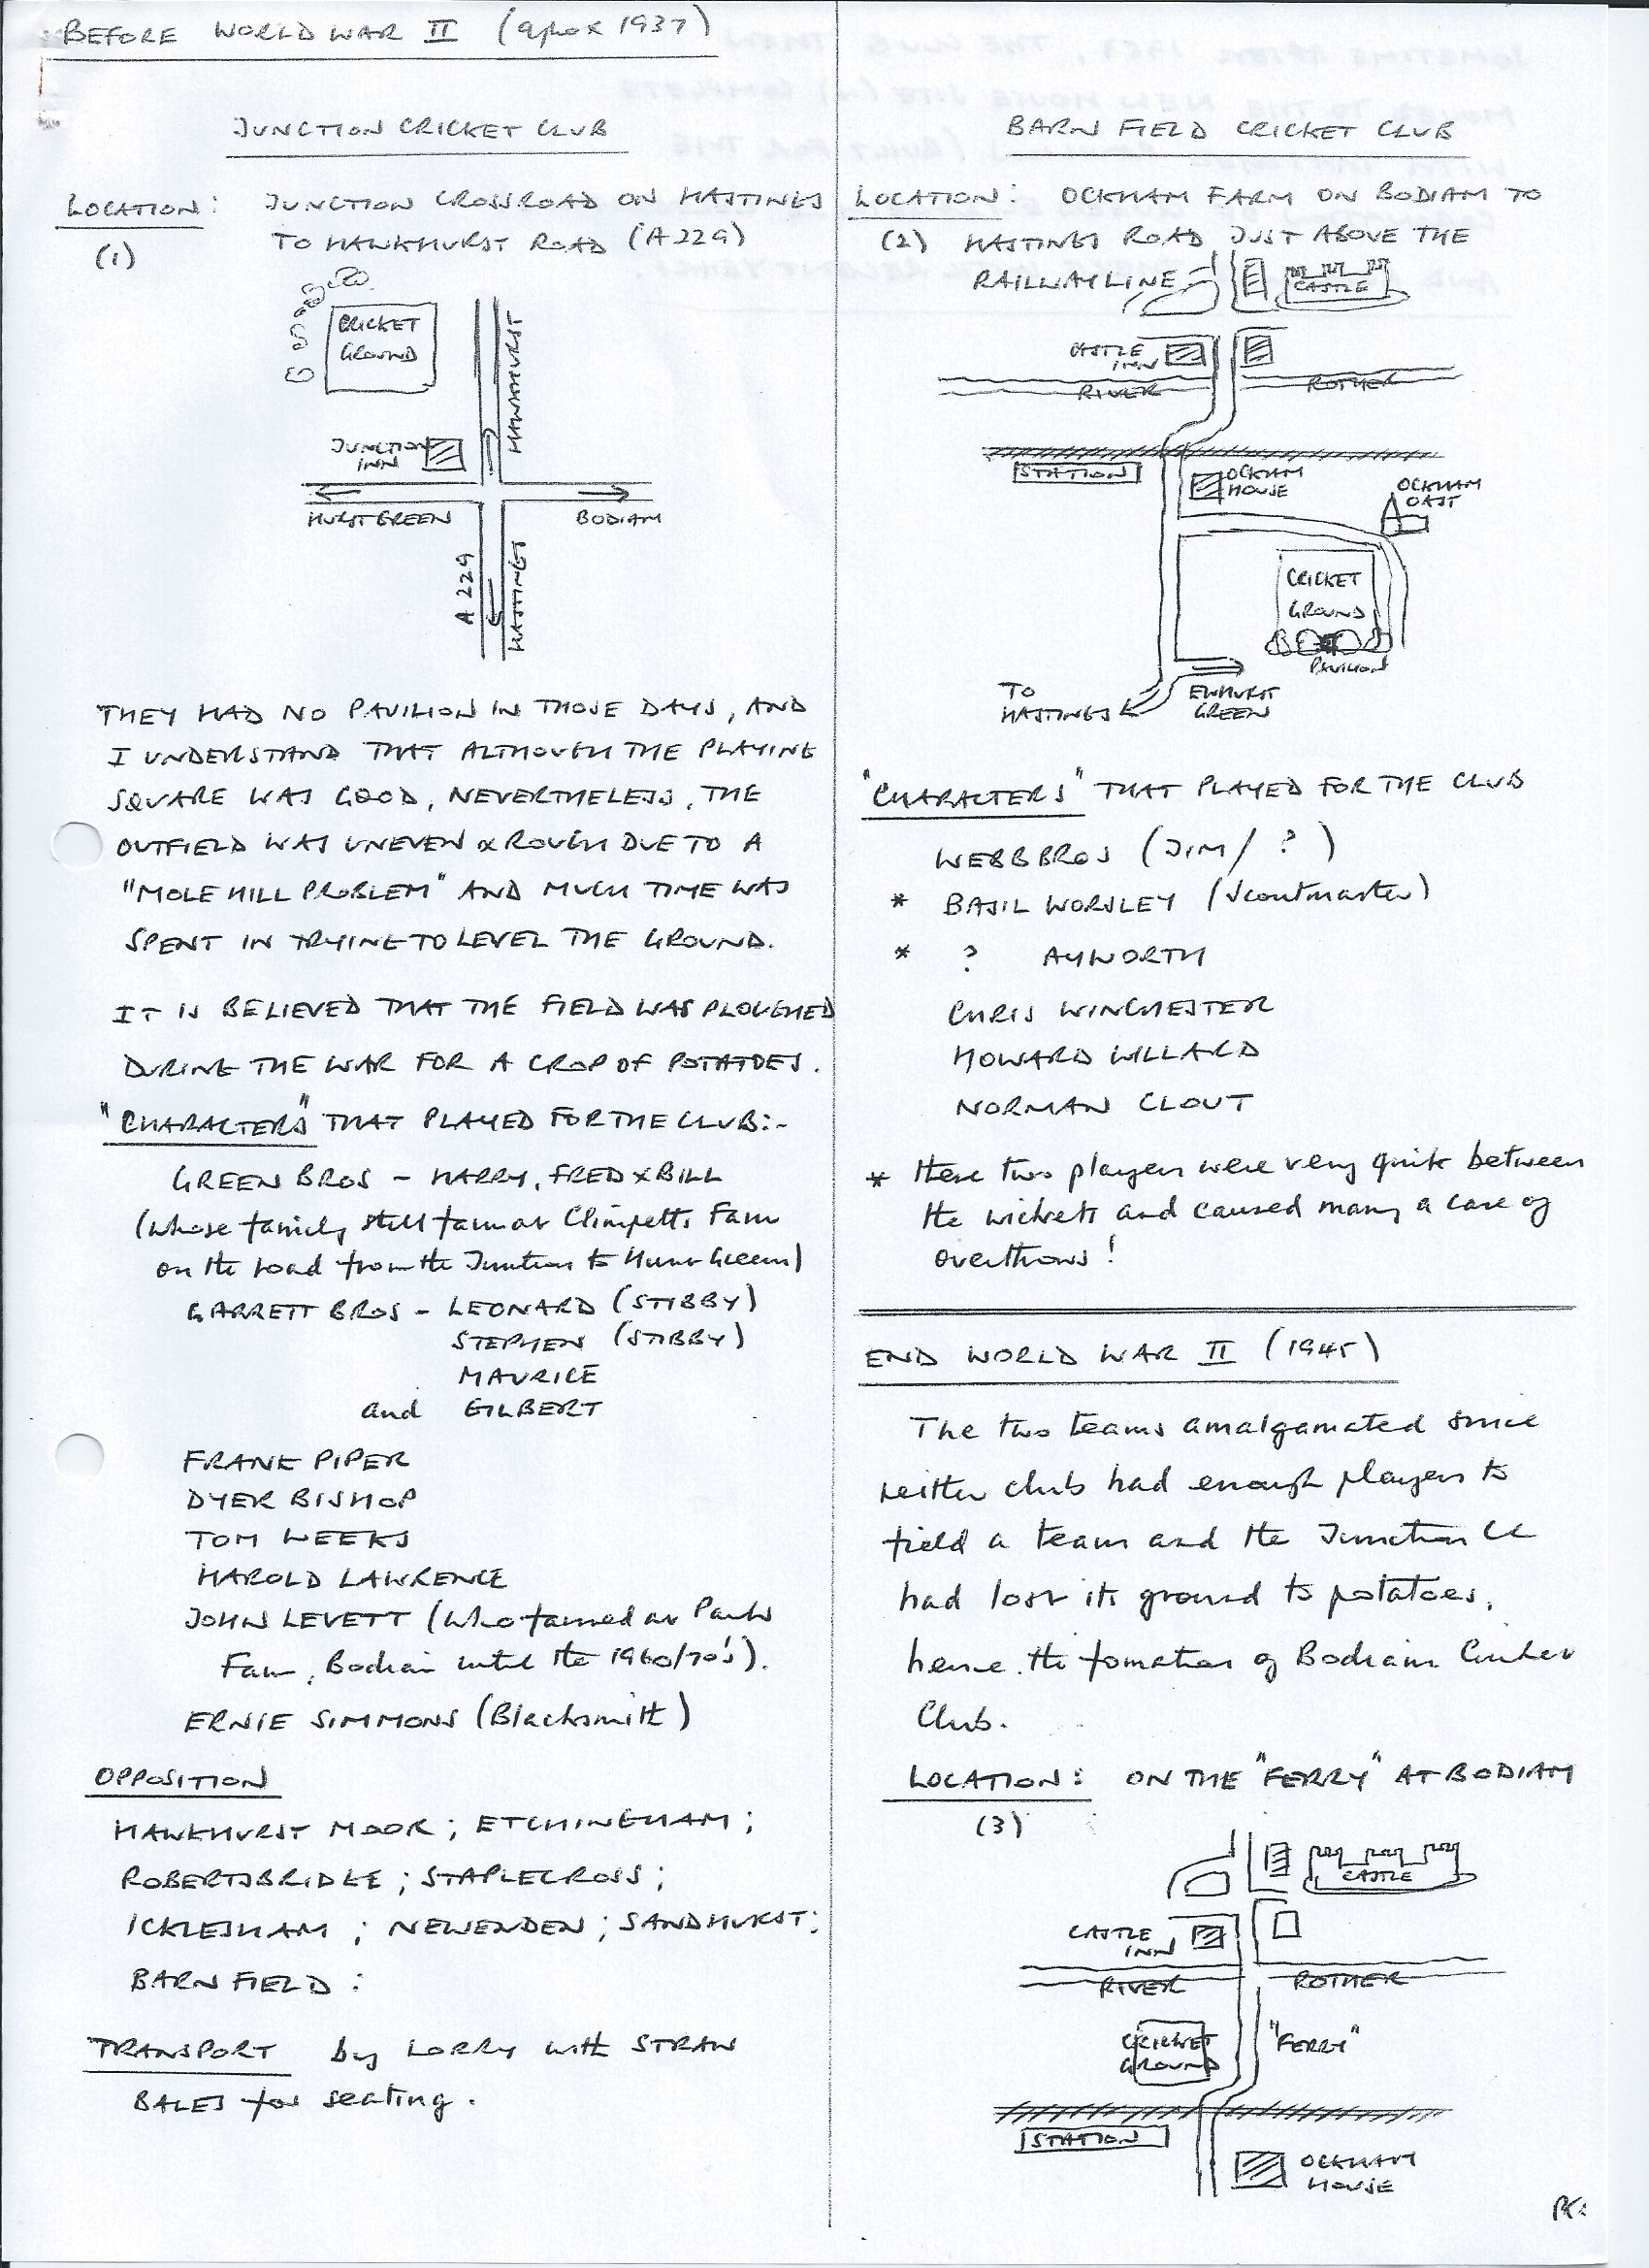 BEFORE WORLD WAR II (apox 1937)
JUNCTION CRICKET CLUB
LOCATION: JUNCTION CROSSROAD ON HASTINGS
(1) TO HAWKHURST ROAD (A229)
CRICKET
GROUND
HAWKHURST
JUNCTION
INN
HURST GREEN
BODIAM
A 229
HASTINGS
THEY HAD NO PAVILION IN THOSE DAYS, AND
I UNDERSTAND THAT ALTHOUGH THE PLAYING
SQUARE WAS GOOD, NEVERTHELESS, THE
OUTFIELD WAS UNEVEN & ROUGH DUE TO A
"MOLE HILL PROBLEM" AND MUCH TIME WAS
SPENT IN TRYING TO LEVEL THE GROUND.
IT IS BELIEVED THAT THE FIELD WAS PLOUGHED
DURING THE WAR FOR A CROP OF POTATOES.
"CHARACTERS" THAT PLAYED FOR THE CLUB:-
GREEN BROS - HARRY, FRED & BILL
(whose family still farm at Climpetts Farm
on the road from the Junction to Hurst Green)
GARRETT BROS - LEONARD (STIBBY)
STEPHEN (STIBBY)
MAURICE
and GILBERT
FRANK PIPER
DYER BISHOP
TOM WEEKS
HAROLD LAWRENCE
JOHN LEVETT (who farmed at Parks
Farm, Bodiam until the 1960/70's).
ERNIE SIMMONS (Blacksmith)
OPPOSITION
HAWKHURST MOOR; ETCHINGHAM;
ROBERTSBRIDGE; STAPLECROSS;
ICKLESHAM; NEWENDEN; SANDHURST;
BARN FIELD:
TRANSPORT by LORRY with STRAW
BALES for seating.
BARN FIELD CRICKET CLUB
LOCATION: OCKHAM FARM ON BODIAM TO
(2) HASTINGS ROAD JUST ABOVE THE
RAILWAY LINE
CASTLE
CASTLE
INN
RIVER ROTHER
STATION
OCKHAM
HOUSE
OCKHAM
OAST
CRICKET
GROUND
PAVILION
TO
HASTINGS
EWHURST
GREEN
"CHARACTERS" THAT PLAYED FOR THE CLUB
WEBB BROS (JIM/ ? )
* BASIL WORSLEY (Scoutmaster)
* ? AYWORTH
CHRIS WINCHESTER
HOWARD WILLARD
NORMAN CLOUT
* these two players were very quick between
the wickets and caused many a case of
overthrows!
END WORLD WAR II (1945)
The two teams amalgamated since
neither club had enough players to
field a team and the Junction CC
had lost its ground to potatoes,
hence the formation of Bodiam Cricket
Club.
LOCATION: ON THE "FERRY" AT BODIAM
(3)
CASTLE
CASTLE
INN
RIVER ROTHER
CRICKET
GROUND
"FERRY"
STATION
OCKHAM
HOUSE